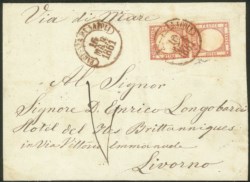 Via di Mare
1861
Al Signor
Signore D. Enrico Longobardo
Hotel des Iles Brittanniques
in Via Vittorio Emmanuele
Livorno